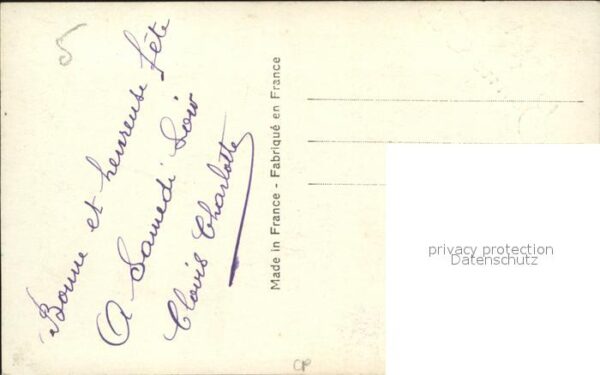 5
Bonne et heureuse fête
A Samedi Soir
Clovis Charlotte
Made in France - Fabriqué en France
privacy protection
Datenschutz
CP